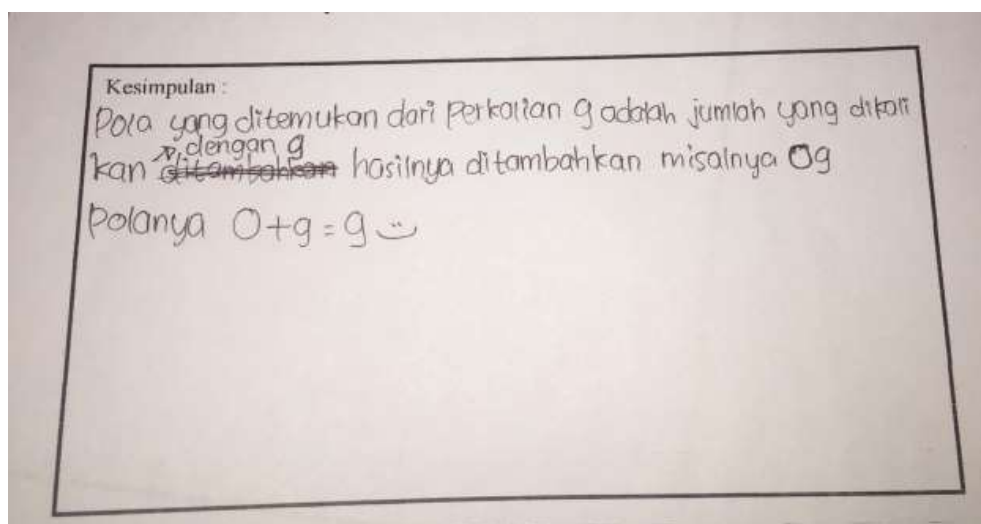 Kesimpulan :
Pola yang ditemukan dari perkalian 9 adalah jumlah yang dikali
kan ditambahkan dengan 9 hasilnya ditambahkan misalnya 09
Polanya 0+9=9